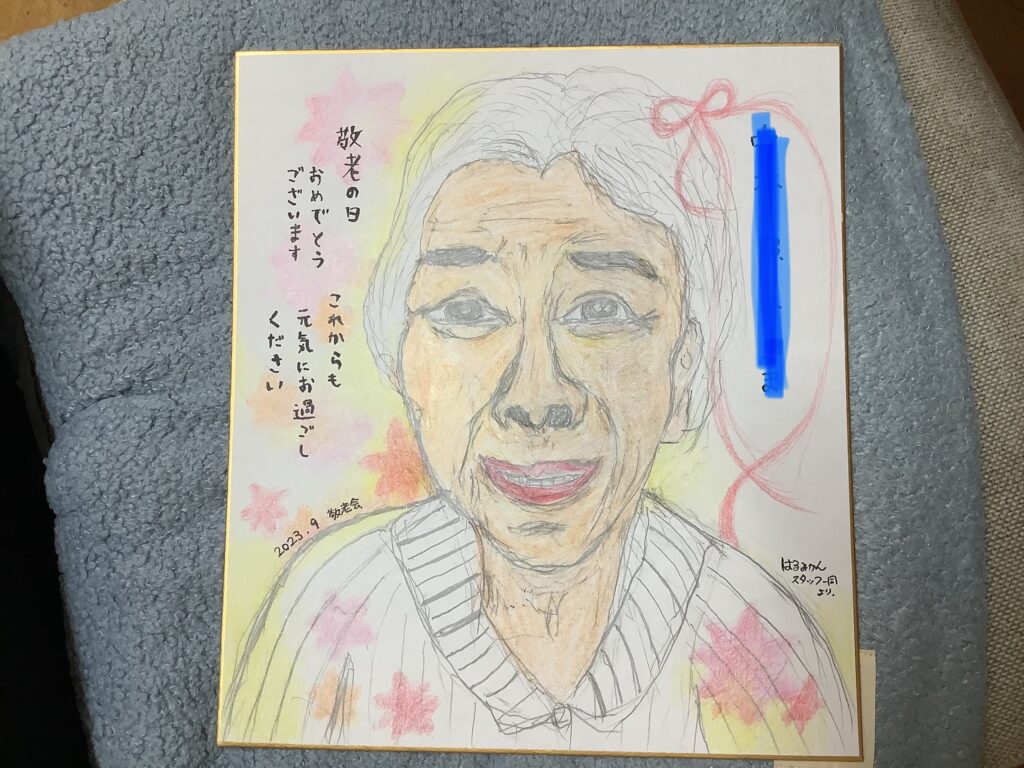 敬老の日
おめでとう
ございます
これからも
元気にお過ごし
ください
2023.9 敬老会
はるみかん
スタッフ一同
より.